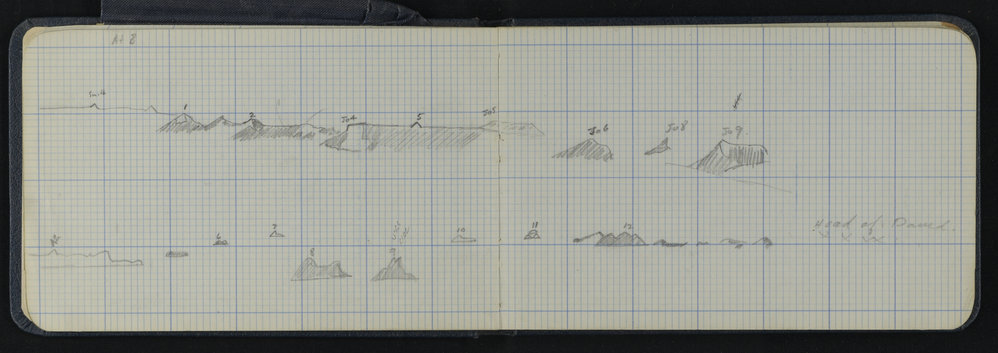 At B
Smith
1
2
Jo4
5
Jo5
Jo6
Jo8
Jo9
6
7
8
9
10
11
12
Head of David